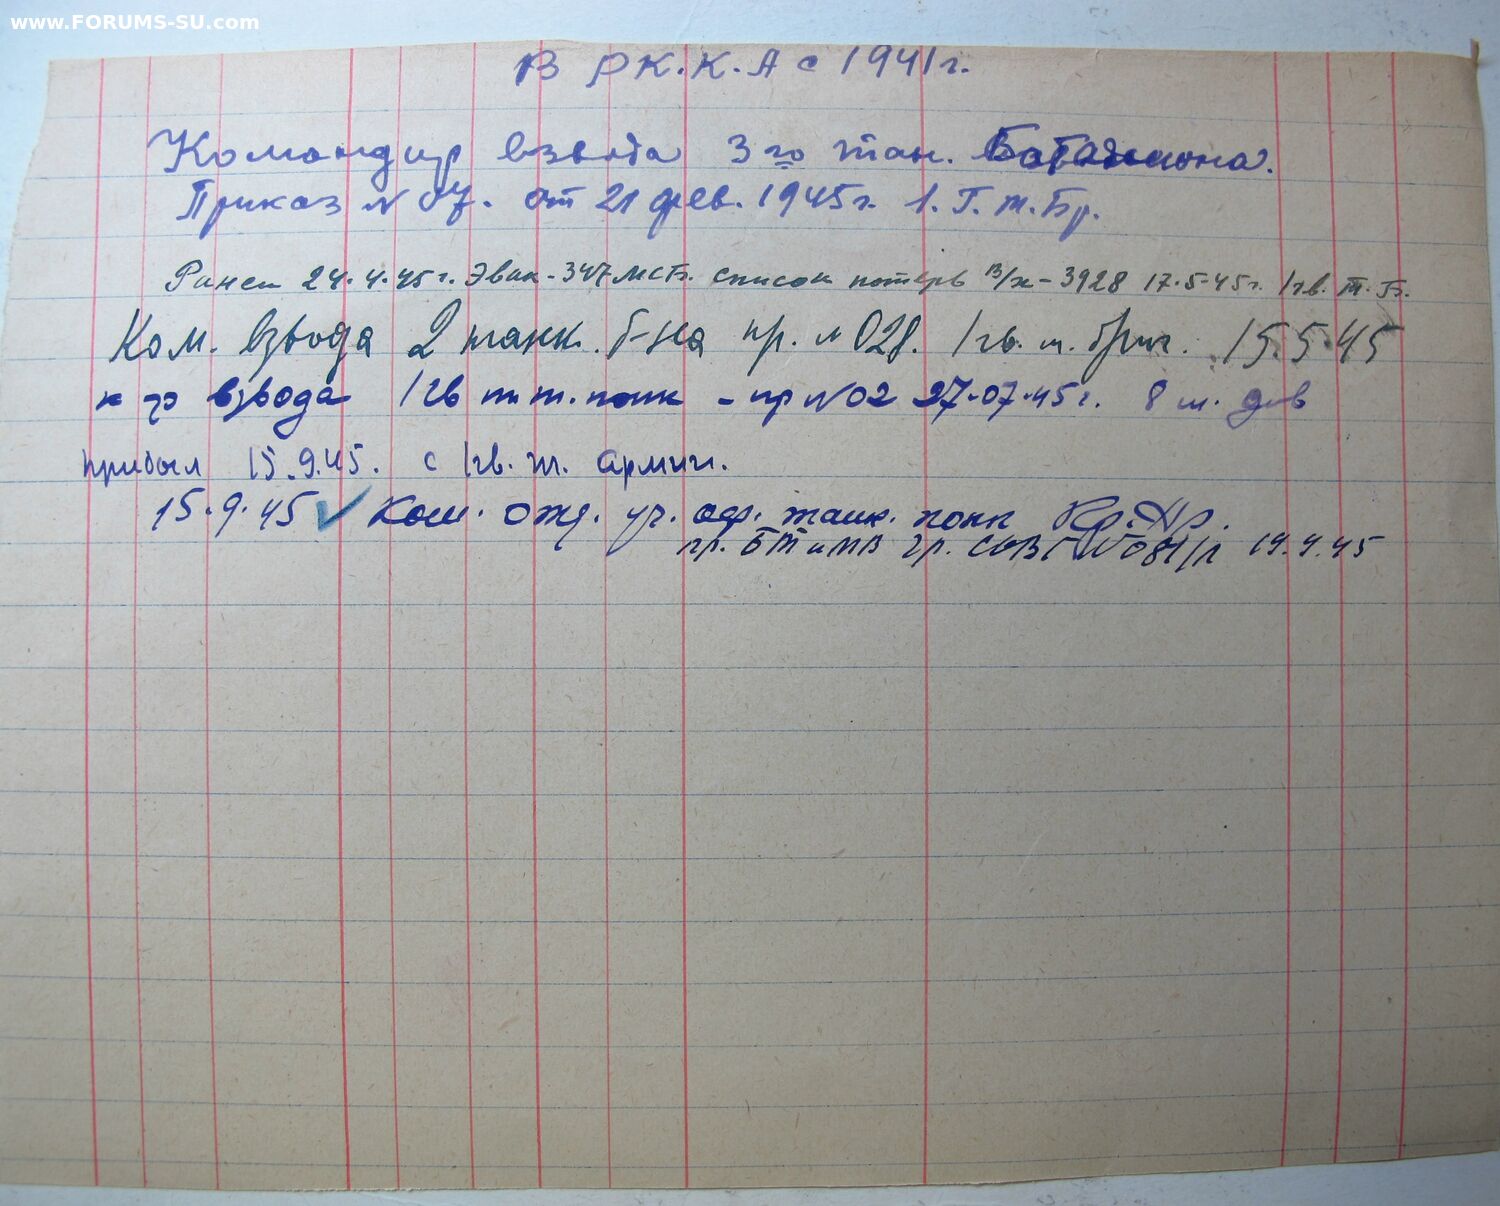 www.FORUMS-SU.com
В РК.К.А с 1941г.
Командир взвода 3го тан. Батальона.
Приказ № 07. от 21 фев. 1945г. 1.Г.т.Бр.
Ранен 24.4.45г. Эвак-347 МСБ. список потерь В/х-3928 17.5.45г. 1гв. Т.Б.
Ком. взвода 2 танк. б-на пр. № 028. 1гв.т.бриг. 15.5.45
к-р взвода 1гв т.т.полк - пр № 02 27.07.45г. 8 м. див
прибыл 15.9.45. с 1гв. т. армии.
15.9.45 ✓ Ком. отд. уч. оф. танк. полк
пр. БТиМВ гр. СОВГ № 081/л 19.9.45